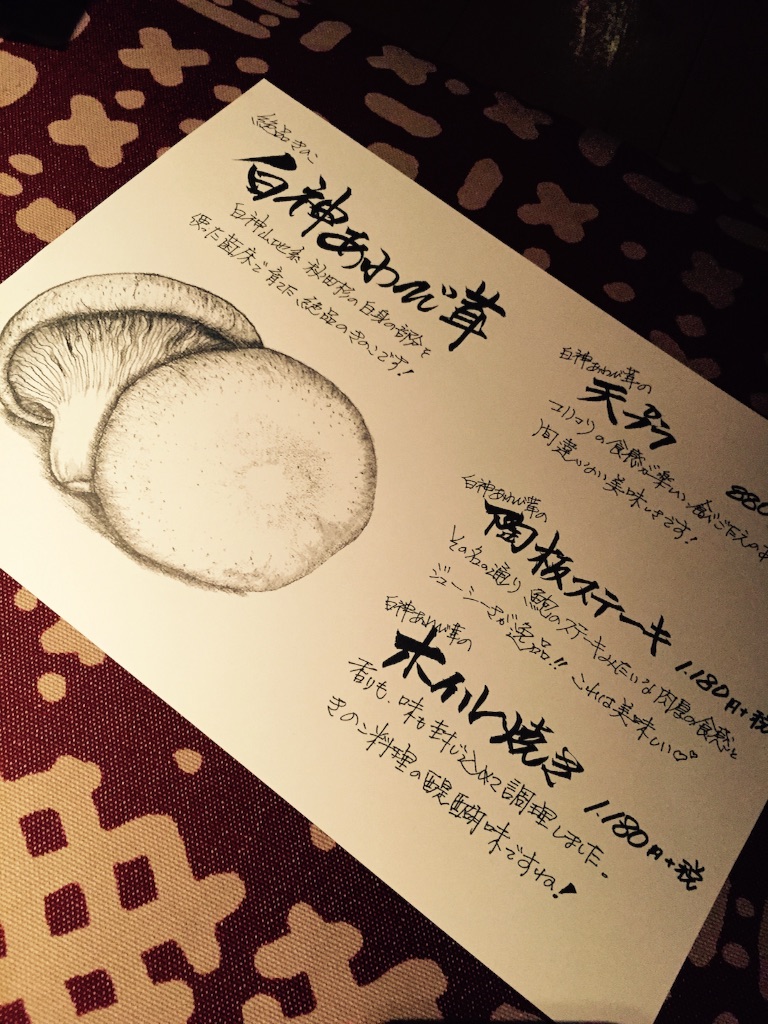 絶品きのこ
白神あわび茸
白神山地系 秋田杉の白身の部分を
使った菌床で育てた 絶品のきのこです!
白神あわび茸の
天ぷら
880
コリコリの食感が楽しい、食べごたえのあ
間違いない美味しさです!
白神あわび茸の
陶板ステーキ 1.180円+税
その名の通り 鮑のステーキみたいな肉厚の食感と
ジューシーさが逸品!! これは美味しい♡♡
白神あわび茸の
ホイル焼き 1.180円+税
香りも、味も封じ込めて調理しました。
きのこ料理の醍醐味ですね!